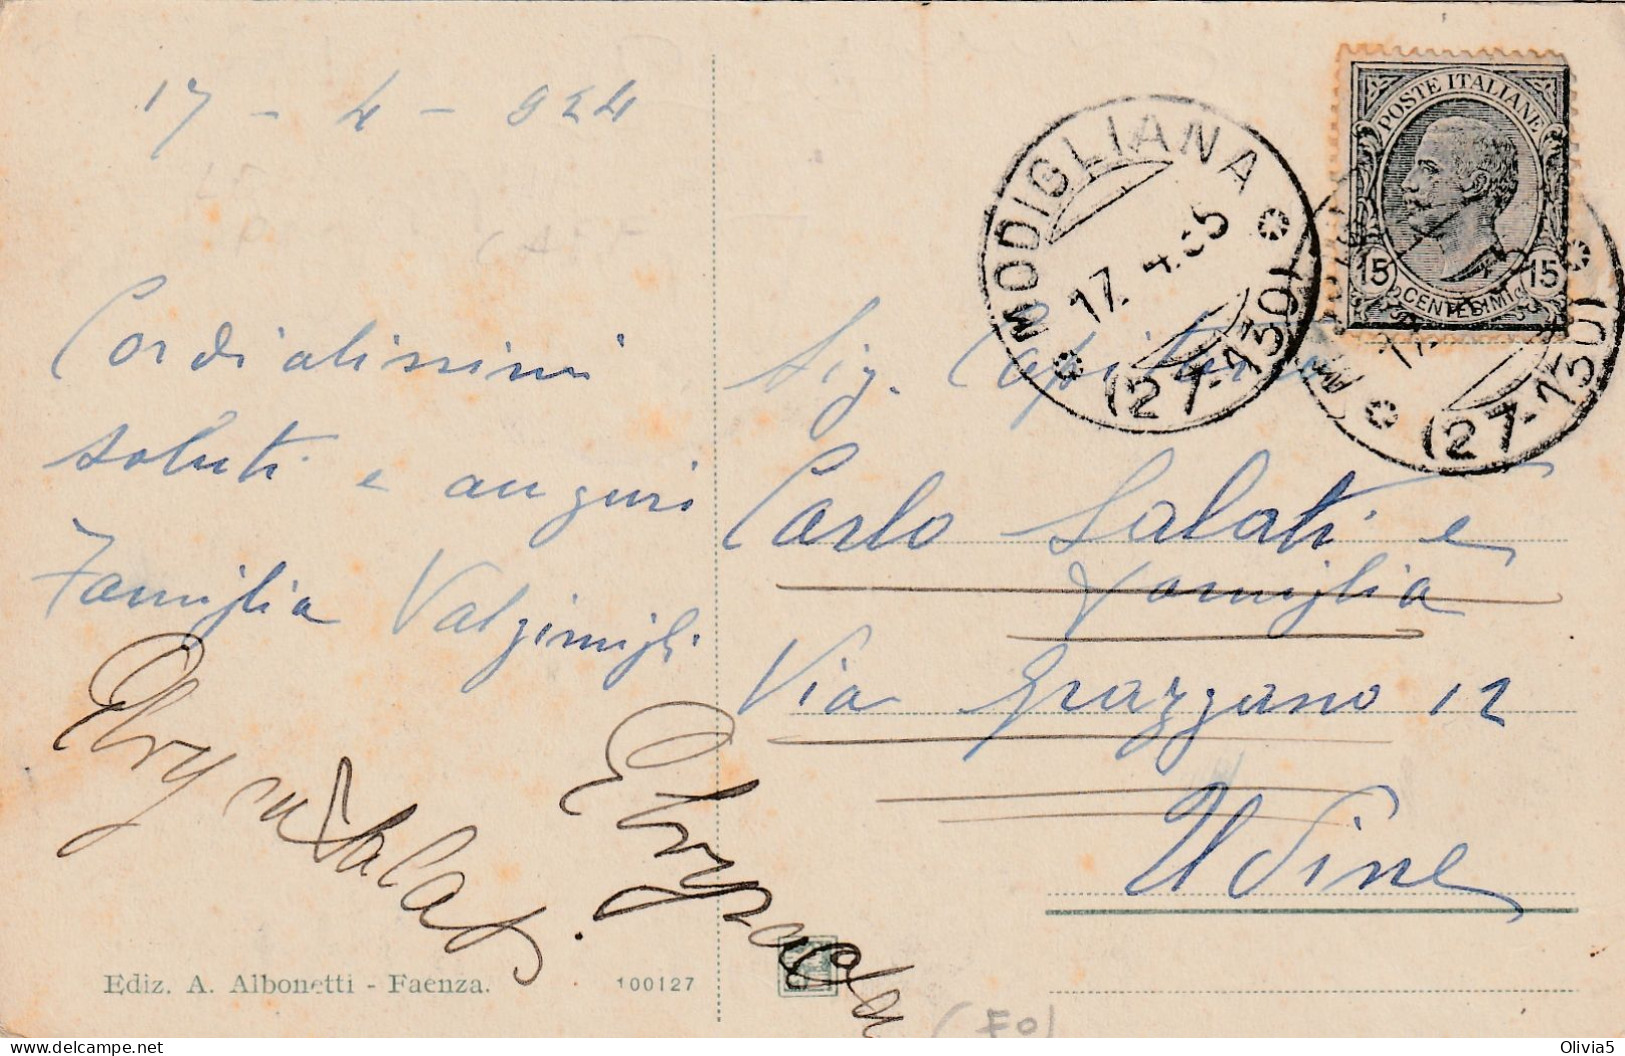 17 - 4 - 924
Cordialissimi
saluti e auguri
Famiglia Valzimigli
Sig. Capitano
Carlo Salati e
famiglia
Via Grazzano 12
Udine
Salati
POSTE ITALIANE
15 15
CENTESIMI
MODIGLIANA
17. 4.35
(27-130)
17
(27-130)
Ediz. A. Albonetti - Faenza.
100127
(FO)
Olivia5